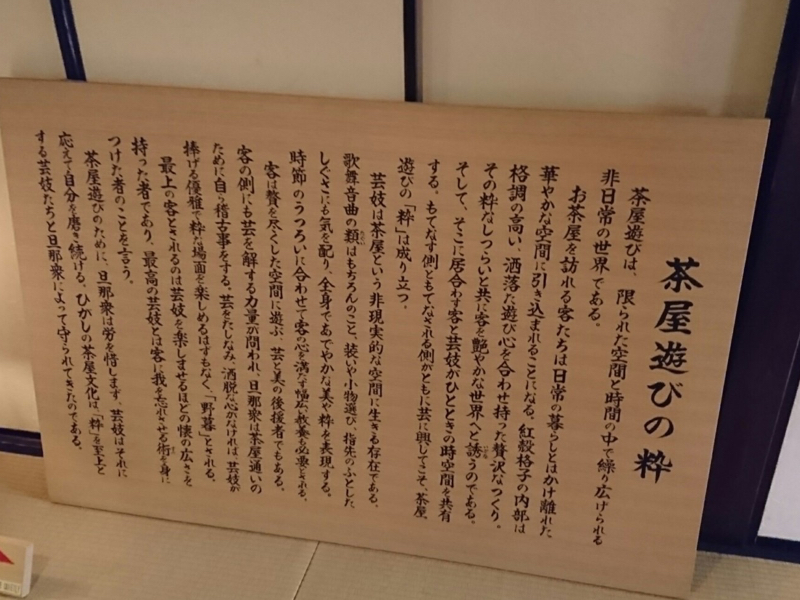 茶屋遊びの粋
茶屋遊びは、限られた空間と時間の中で繰り広げられる
非日常の世界である。
お茶屋を訪れる客たちは日常の暮らしとはかけ離れた
華やかな空間に引き込まれることになる。紅殻格子の内部は
格調の高い、洒落た遊び心を合わせ持った贅沢なつくり。
その粋なしつらいと共に客を艶やかな世界へと誘うのである。
そして、そこに居合わす客と芸妓がひとときの時空間を共有
する。もてなす側ともてなされる側がともに芸に興じてこそ、茶屋
遊びの「粋」は成り立つ。
芸妓は茶屋という非現実的な空間に生きる存在である。
歌舞音曲の類はもちろんのこと、装いや小物選び、指先のふとした
しぐさにも気を配り、全身であでやかな美や粋を表現する。
時節のうつろいに合わせて客の心を満たす幅広い教養も必要とされる。
客は贅を尽くした空間に遊ぶ、芸と美の後援者でもある。
客の側にも芸を解する力量が問われ、旦那衆は茶屋通いの
ために自ら稽古事をする。芸をたしなみ、洒脱な心がなければ、芸妓が
捧げる優雅で粋な場面を楽しめるはずもなく、「野暮」とされる。
最上の客とされるのは芸妓を楽しませるほどの懐の広さを
持った者であり、最高の芸妓とは客に我を忘れさせる術を身に
つけた者のことを言う。
茶屋遊びのために、旦那衆は労を惜します、芸妓はそれに
応えて自分を磨き続ける。ひがしの茶屋文化は、「粋」を至上と
する芸妓たちと旦那衆によって守られてきたのである。